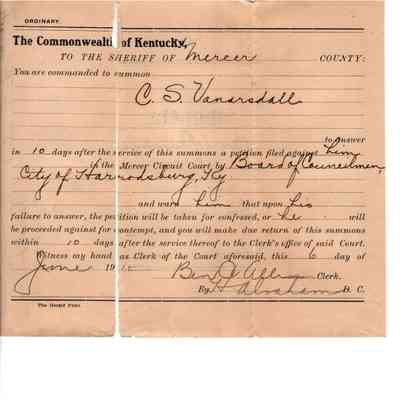 ORDINARY.
The Commonwealth of Kentucky,
TO THE SHERIFF OF Mercer COUNTY:
You are commanded to summon
C. S. Vanarsdall
to answer
in 10 days after the service of this summons a petition filed against him
in the Mercer Circuit Court by Board of Councilmen,
City of Harrodsburg, Ky
and warn him that upon his
failure to answer, the petition will be taken for confessed, or he will
be proceeded against for contempt, and you will make due return of this summons
within 10 days after the service thereof to the Clerk's office of said Court.
Witness my hand as Clerk of the Court aforesaid, this 6 day of
June 191 Ben Allin Clerk.
By Abraham D. C.
The Herald Print